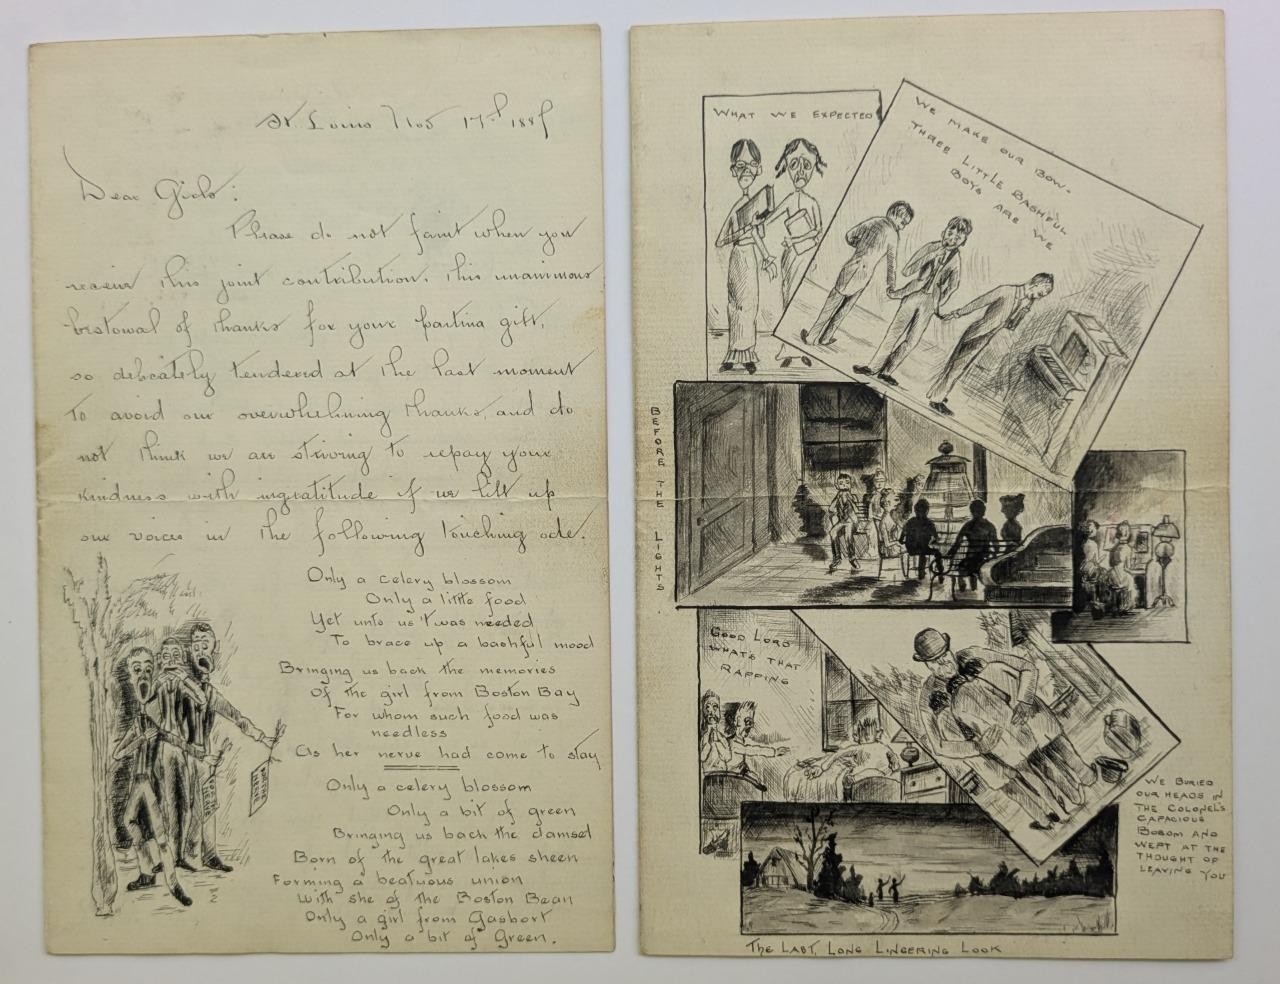 St. Louis Nov 17th 188
Dear Girls:
Please do not faint when you
receive this joint contribution. This unanimous
bestowal of thanks for your parting gift,
so delicately tendered at the last moment
to avoid our overwhelming thanks, and do
not think we are striving to repay your
kindness with ingratitude if we lift up
our voices in the following touching ode.
Only a celery blossom
Only a little food
Yet unto us 't was needed
To brace up a bashful mood
Bringing us back the memories
Of the girl from Boston Bay
For whom such food was
needless
As her nerve had come to stay
Only a celery blossom
Only a bit of green
Bringing us back the damsel
Born of the great lakes sheen
Forming a beatuous union
With she of the Boston Bean
Only a girl from Gasbort
Only a bit of Green.
WHAT WE EXPECTED
WE MAKE OUR BOW.
THREE LITTLE BASHFUL
BOYS ARE WE
BEFORE THE LIGHTS.
GOOD LORD
WHATS THAT
RAPPING
WE BURIED
OUR HEADS IN
THE COLONEL'S
CAPACIOUS
BOSOM AND
WEPT AT THE
THOUGHT OF
LEAVING YOU
THE LAST, LONG LINGERING LOOK